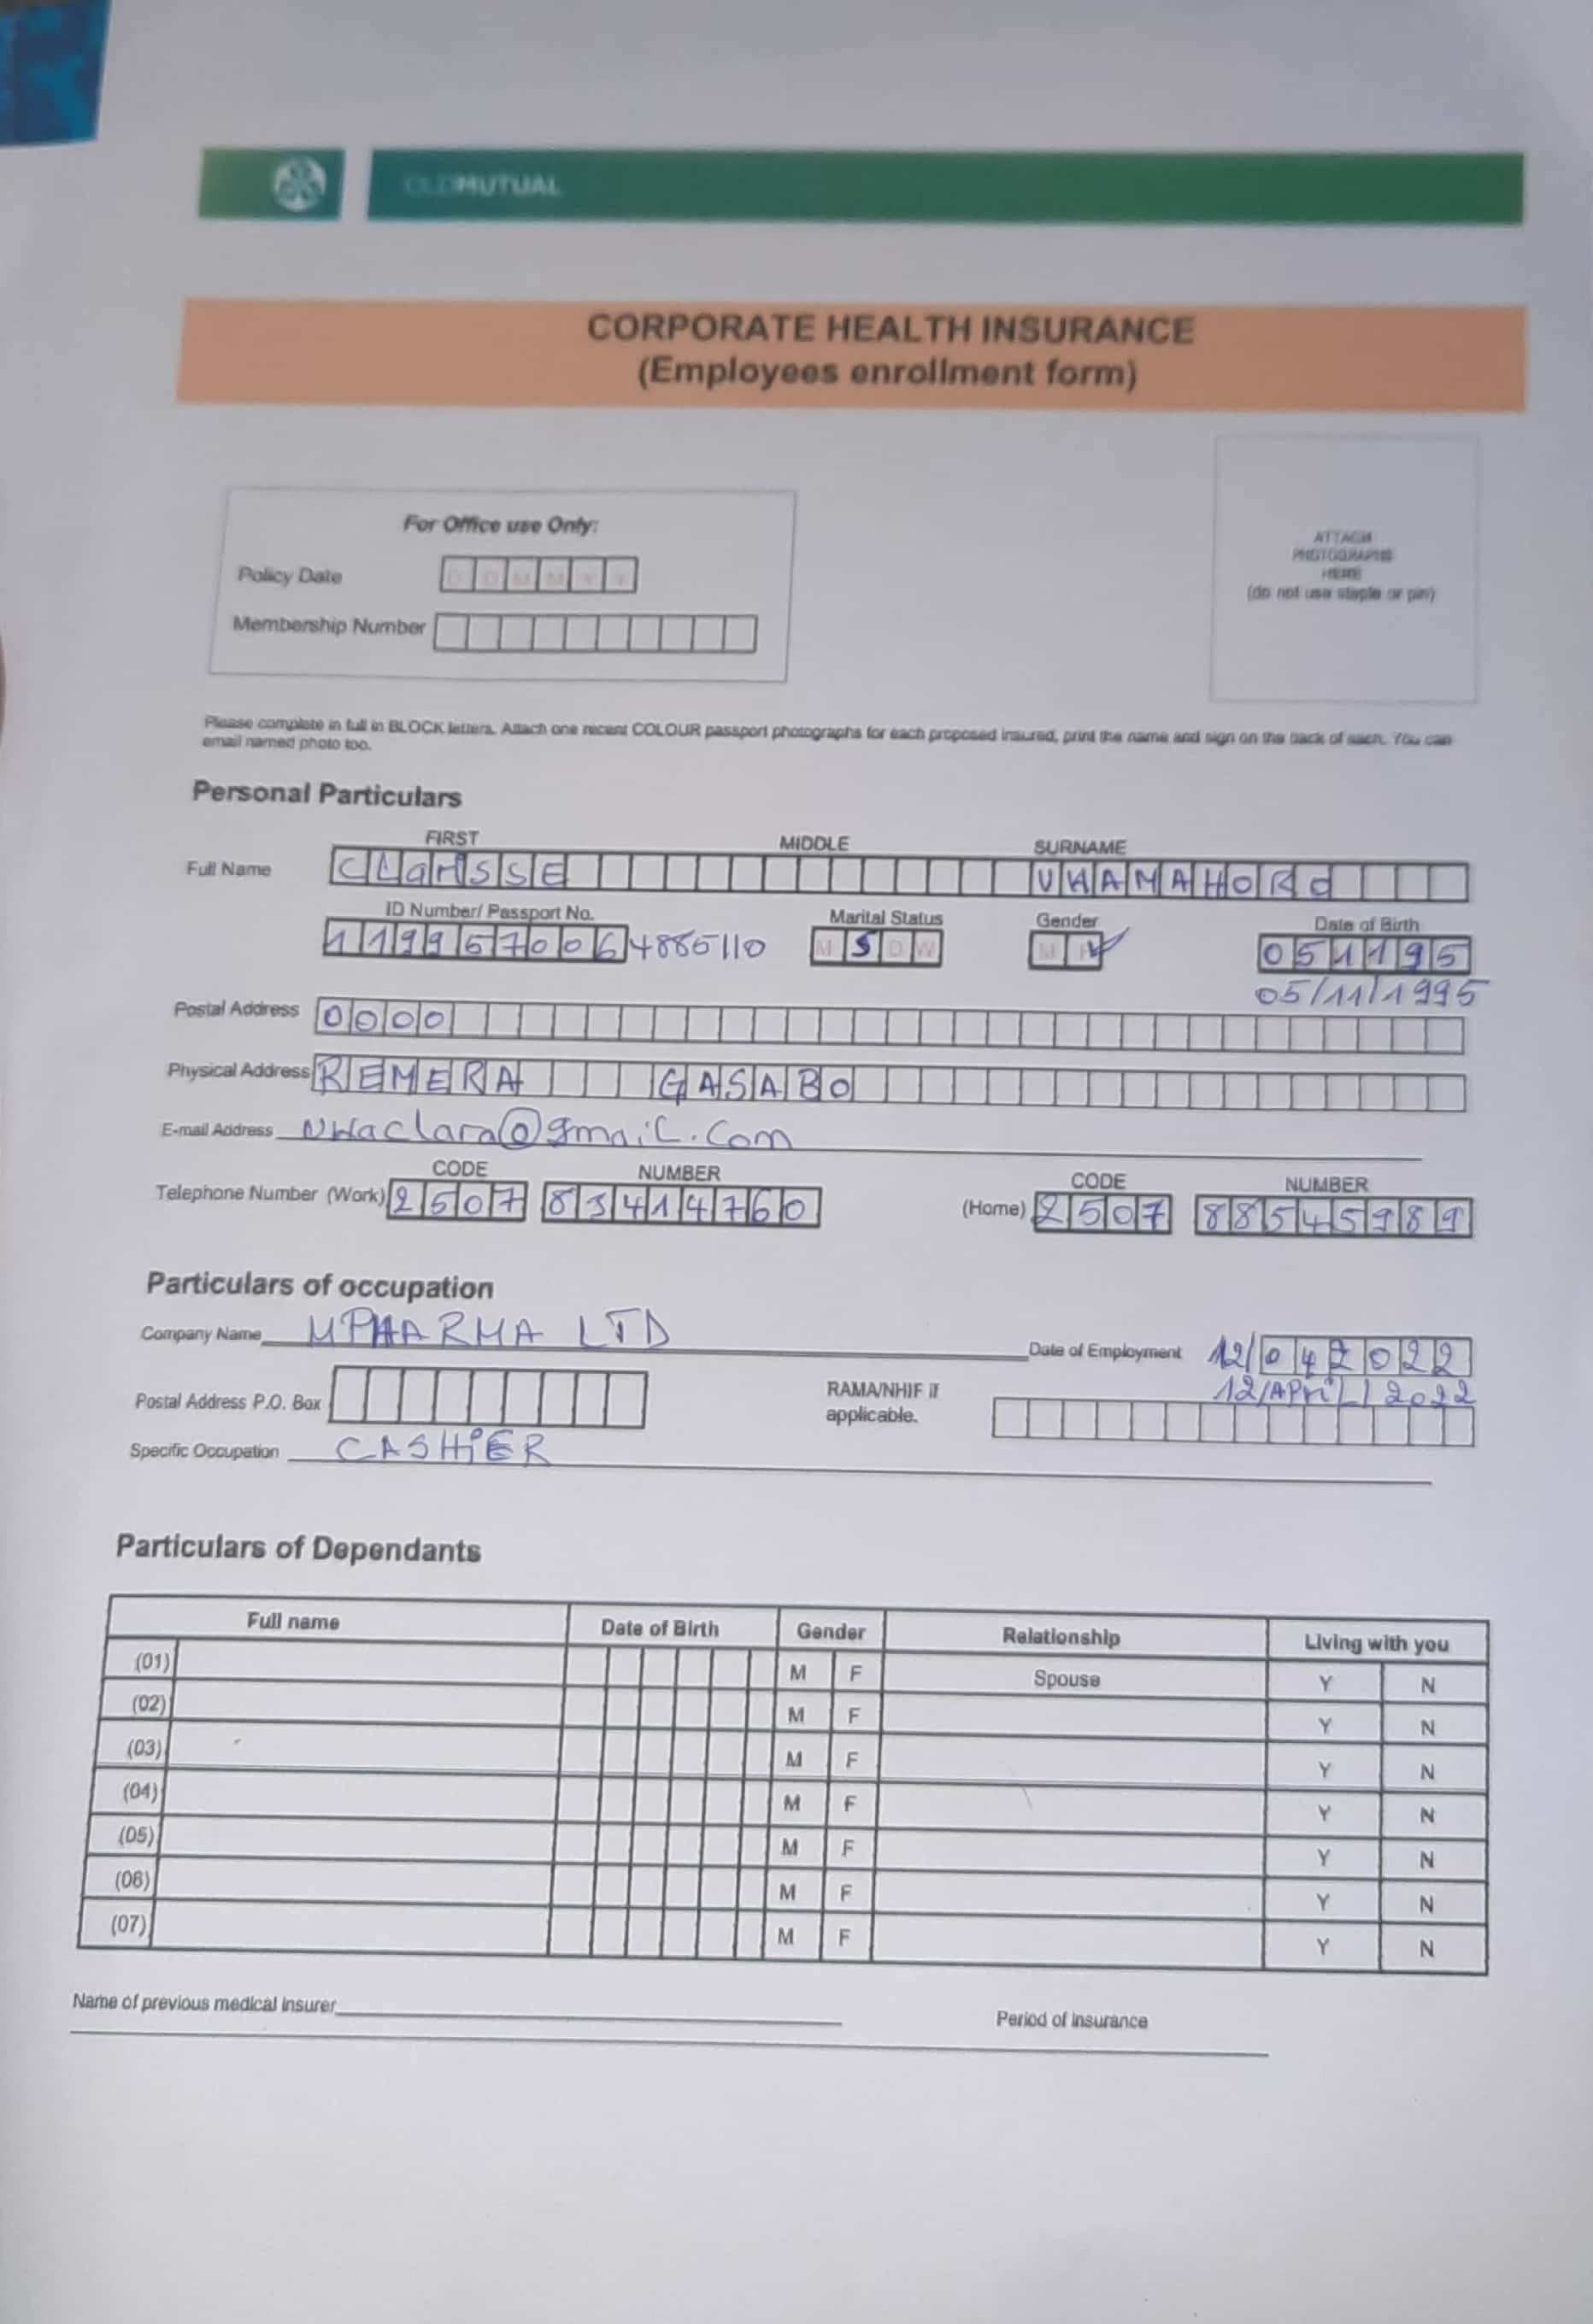 OLDMUTUAL
CORPORATE HEALTH INSURANCE
(Employees enrollment form)
For Office use Only:
Policy Date D D M M Y Y
Membership Number
ATTACH
PHOTOGRAPHS
HERE
(do not use staple or pin)
Please complete in full in BLOCK letters. Attach one recent COLOUR passport photographs for each proposed insured, print the name and sign on the back of each. You can
email named photo too.
Personal Particulars
FIRST MIDDLE SURNAME
Full Name
ID Number/ Passport No. Marital Status Gender Date of Birth
M S D W M F 051195
05/11/1995
Postal Address 0000
Physical Address REMERA GASABO
E-mail Address @gmail.com
CODE NUMBER CODE NUMBER
Telephone Number (Work) 2507 83414760 (Home) 2507 88545989
Particulars of occupation
Company Name MPHARMA LTD Date of Employment 12/042022
12/April/2022
Postal Address P.O. Box RAMA/NHIF if
applicable.
Specific Occupation CASHIER
Particulars of Dependants
Full name Date of Birth Gender Relationship Living with you
(01) M F Spouse Y N
(02) M F Y N
(03) M F Y N
(04) M F Y N
(05) M F Y N
(06) M F Y N
(07) M F Y N
Name of previous medical insurer Period of insurance